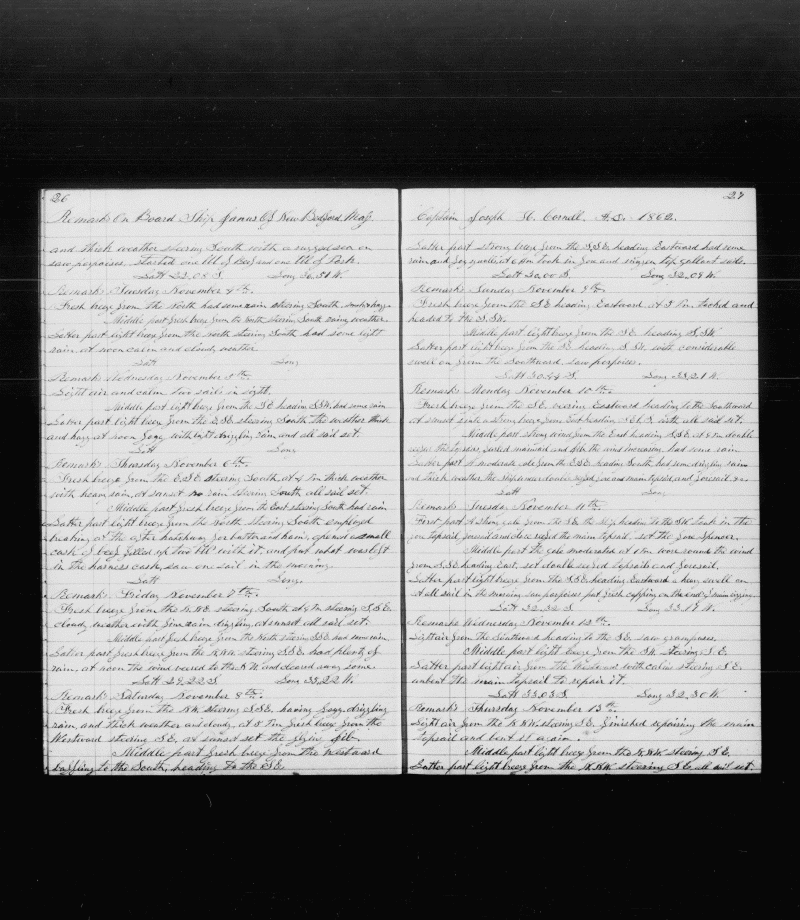 26
Remarks On Board Ship James Of New Bedford Mass.
and thick weather steering South with a rugged sea on
saw porpoises. Started one bbl of Beef and one bbl of Pork.
Latt 22,05 S. Long 36,51 W.
Remarks Tuesday November 4th.
Fresh breeze from the North had some rain steering South,
Middle part fresh breeze from the North steering South rainy weather.
Latter part light breeze from the north steering South had some light
rain, at noon calm and cloudy weather
Latt Long
Remarks Wednesday November 5th.
Light air and calm two sails in sight.
Middle part light breeze from the SE heading SSW. had some rain
Latter part light breeze from the ESE steering South. The weather thick
and hazy at noon foggy with light drizzling rain and all sail set.
Latt Long
Remarks Thursday November 6th.
Fresh breeze from the ESE steering South, at 4 Pm thick weather
with heavy rain, at sunset no rain steering South all sail set.
Middle part fresh breeze from the East steering South had rain
Latter part light breeze from the North steering South employed
breaking at the after hatchway for butter and ham, opened a small
cask of beef filled up two bbls with it. and put what was left
in the harness cask, saw one sail in the morning.
Latt Long.
Remarks Friday November 7th.
Fresh breeze from the NNE steering South at 4 Pm steering SSE.
cloudy weather with fine rain drizzling, at sunset all sail set.
Middle part fresh breeze from the North steering SSE had some rain.
Latter part fresh breeze from the NNW. steering SSE. had plenty of
rain, at noon the wind veered to the NW and cleared away some
Latt 29,22 S. Long 33,22 W.
Remarks Saturday November 8th.
Fresh breeze from the NW steering SSE. having foggy drizzling
rain, and thick weather and cloudy, at 5 Pm fresh breeze from the
Westward steering SE, at sunset set the flying jib.
Middle part fresh breeze from the Westward
baffling to the South, heading to the SE.
27
Captain Joseph H. Cornell. A.D. 1862.
Latter part strong breeze from the SSE heading Eastward had some
rain and foggy squalls, at 6 am took in jib and mizzen top gallant sails.
Latt 30,00 S. Long 32,09 W.
Remarks Sunday November 9th.
Fresh breeze from the SE heading Eastward. At 7 Pm. tacked and
headed to the SSW.
Middle part light breeze from the SE heading S,SW
Latter part light breeze from the SE heading SSW, with considerable
swell on from the Southward, saw porpoises.
Latt 30,44 S. Long 33,21 W.
Remarks Monday November 10th.
Fresh breeze from the SE veering Eastward heading to the Southward
At sunset quite a strong breeze from East heading with all sail set.
Middle part strong wind from the East heading SSE. at 8 Pm double
reefed the topsails, furled mainsail and jib the wind increasing, had some rain
Latter part a moderate gale from the ESE heading South, had some drizzling rain
and thick weather the ship under double reefed fore and main topsails and foresail &c
Latt Long
Remarks Tuesday November 11th.
First part A strong gale from the SE the ship heading to the SW took in the
fore topsail, foresail and close reefed the main topsail. set the fore spencer.
Middle part the gale moderated at 1 Am. wore round the wind
from SSE heading East, set double reefed topsails and foresail.
Latter part light breeze from the SSE heading Eastward a heavy swell on
at all sail in the morning saw porpoises put fresh capping on the ends of main rigging.
Latt 32,32 S. Long 33,19 W.
Remarks Wednesday November 12th.
Light air from the Southward heading to the SE. saw grampuses.
Middle part light breeze from the SW. steering S.E.
Latter part light air from the Westward with calms steering SE.
unbent the main topsail to repair it.
Latt 33,03 S. Long 32,30 W.
Remarks Thursday November 13th.
Light air from the NNW steering SE. finished repairing the main
topsail and bent it again.
Middle part light breeze from the NNW steering SE.
Latter part light breeze from the NNW. steering SE all sail set.